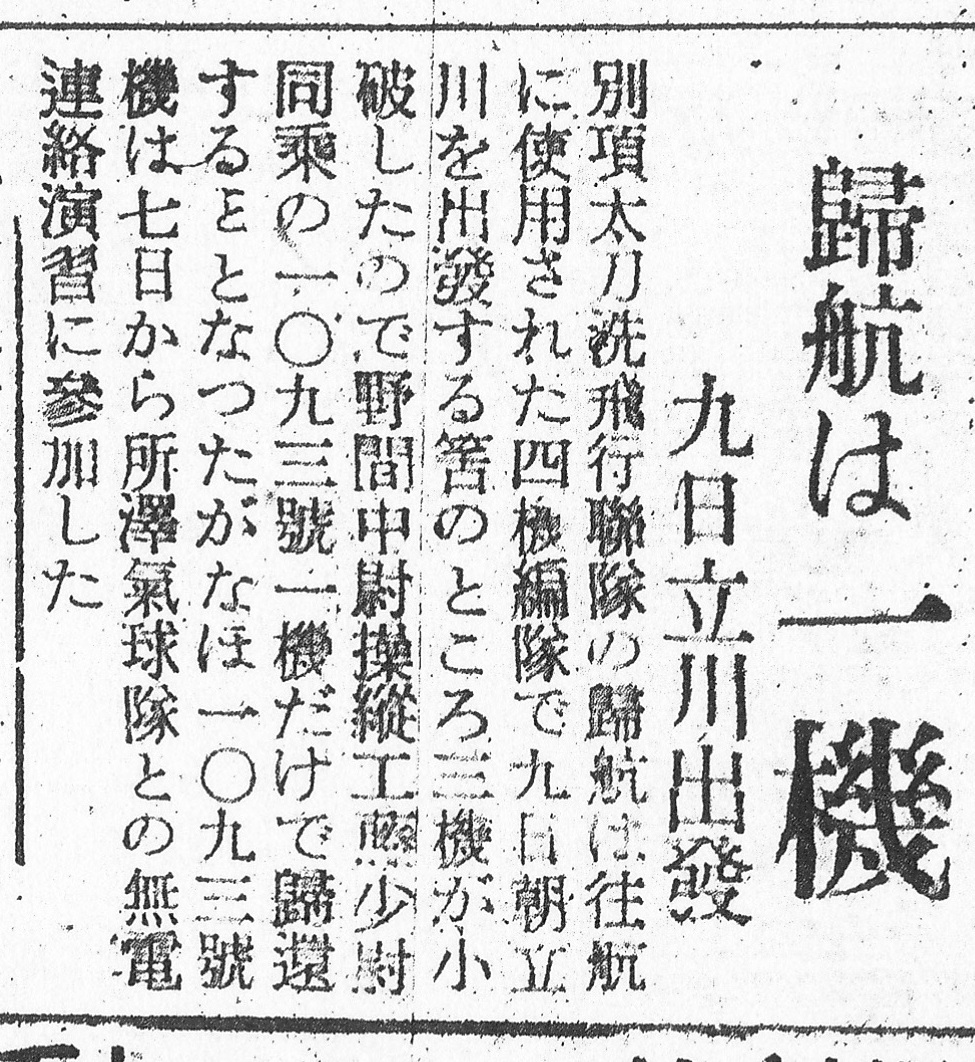 歸航は一機
九日立川出發
別項太刀洗飛行聯隊の歸航は往航
に使用された四機編隊で九日朝立
川を出發する筈のところ三機が小
破したので野間中尉操縱工藤少尉
同乘の一〇九三號一機だけで歸還
することとなつたがなほ一〇九三號
機は七日から所澤氣球隊との無電
連絡演習に參加した